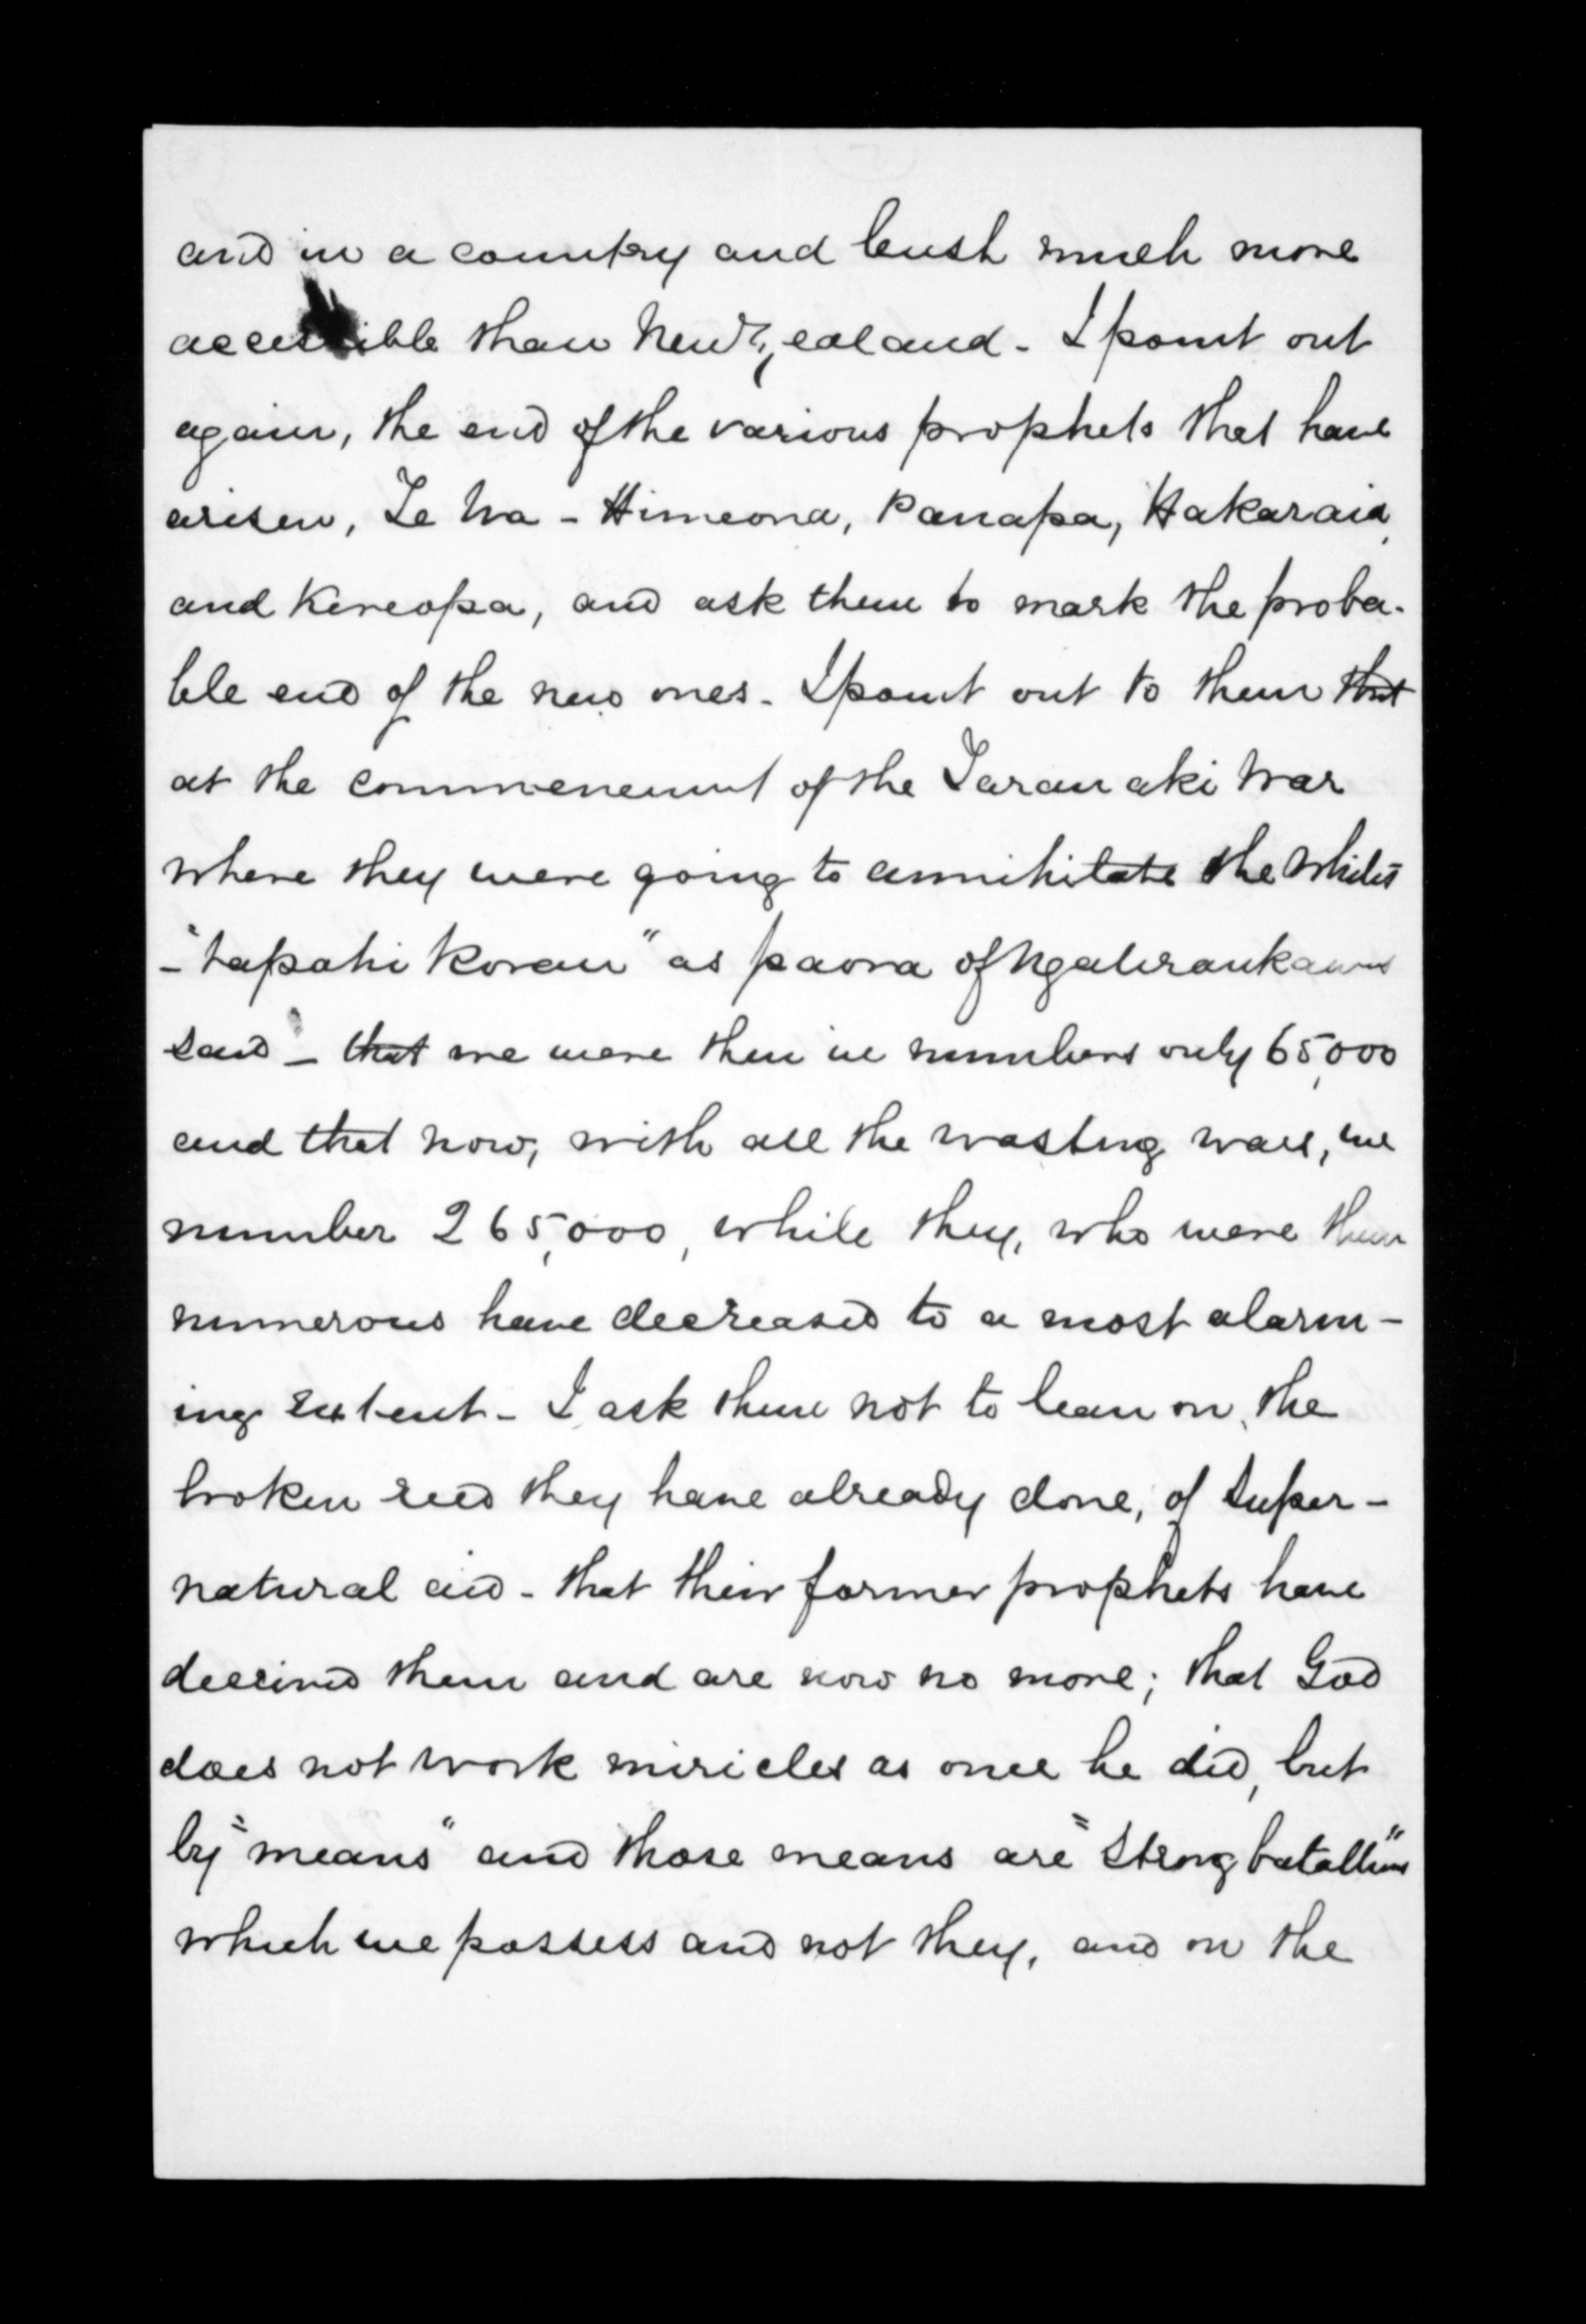 and in a country and bush much more
accessible than New Zealand - I point out
again, the end of the various prophets that have
arisen, Te Ua - Himeona, Panapa, Hakaraia,
and Kereopa, and ask them to mark the proba-
ble end of the new ones - I point out to them that
at the commencement of the Taranaki War
where they were going to annihilate the whites
- "tapahi
as Paora of
said - that we were then in numbers only 65,000
and that now, with all the wasting wars, we
number 265,000, while they, who were then
numerous have decreased to a most alarm-
ing extent - I ask them not to lean on, the
broken reed they have already done, of super-
natural aid - that their former prophets have
deceived them and are now no more; that God
does not work miricles as once he did, but
by "means" and those means are "strong batallions"
which we possess and not they, and on the